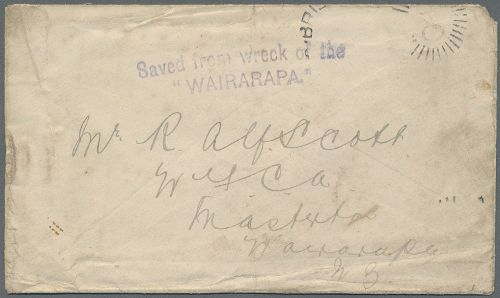 BRIS
Saved from wreck of the
"WAIRARAPA."
Mr R. Alf Scott
W F C A
Masterton
Wairarapa
N. Z.